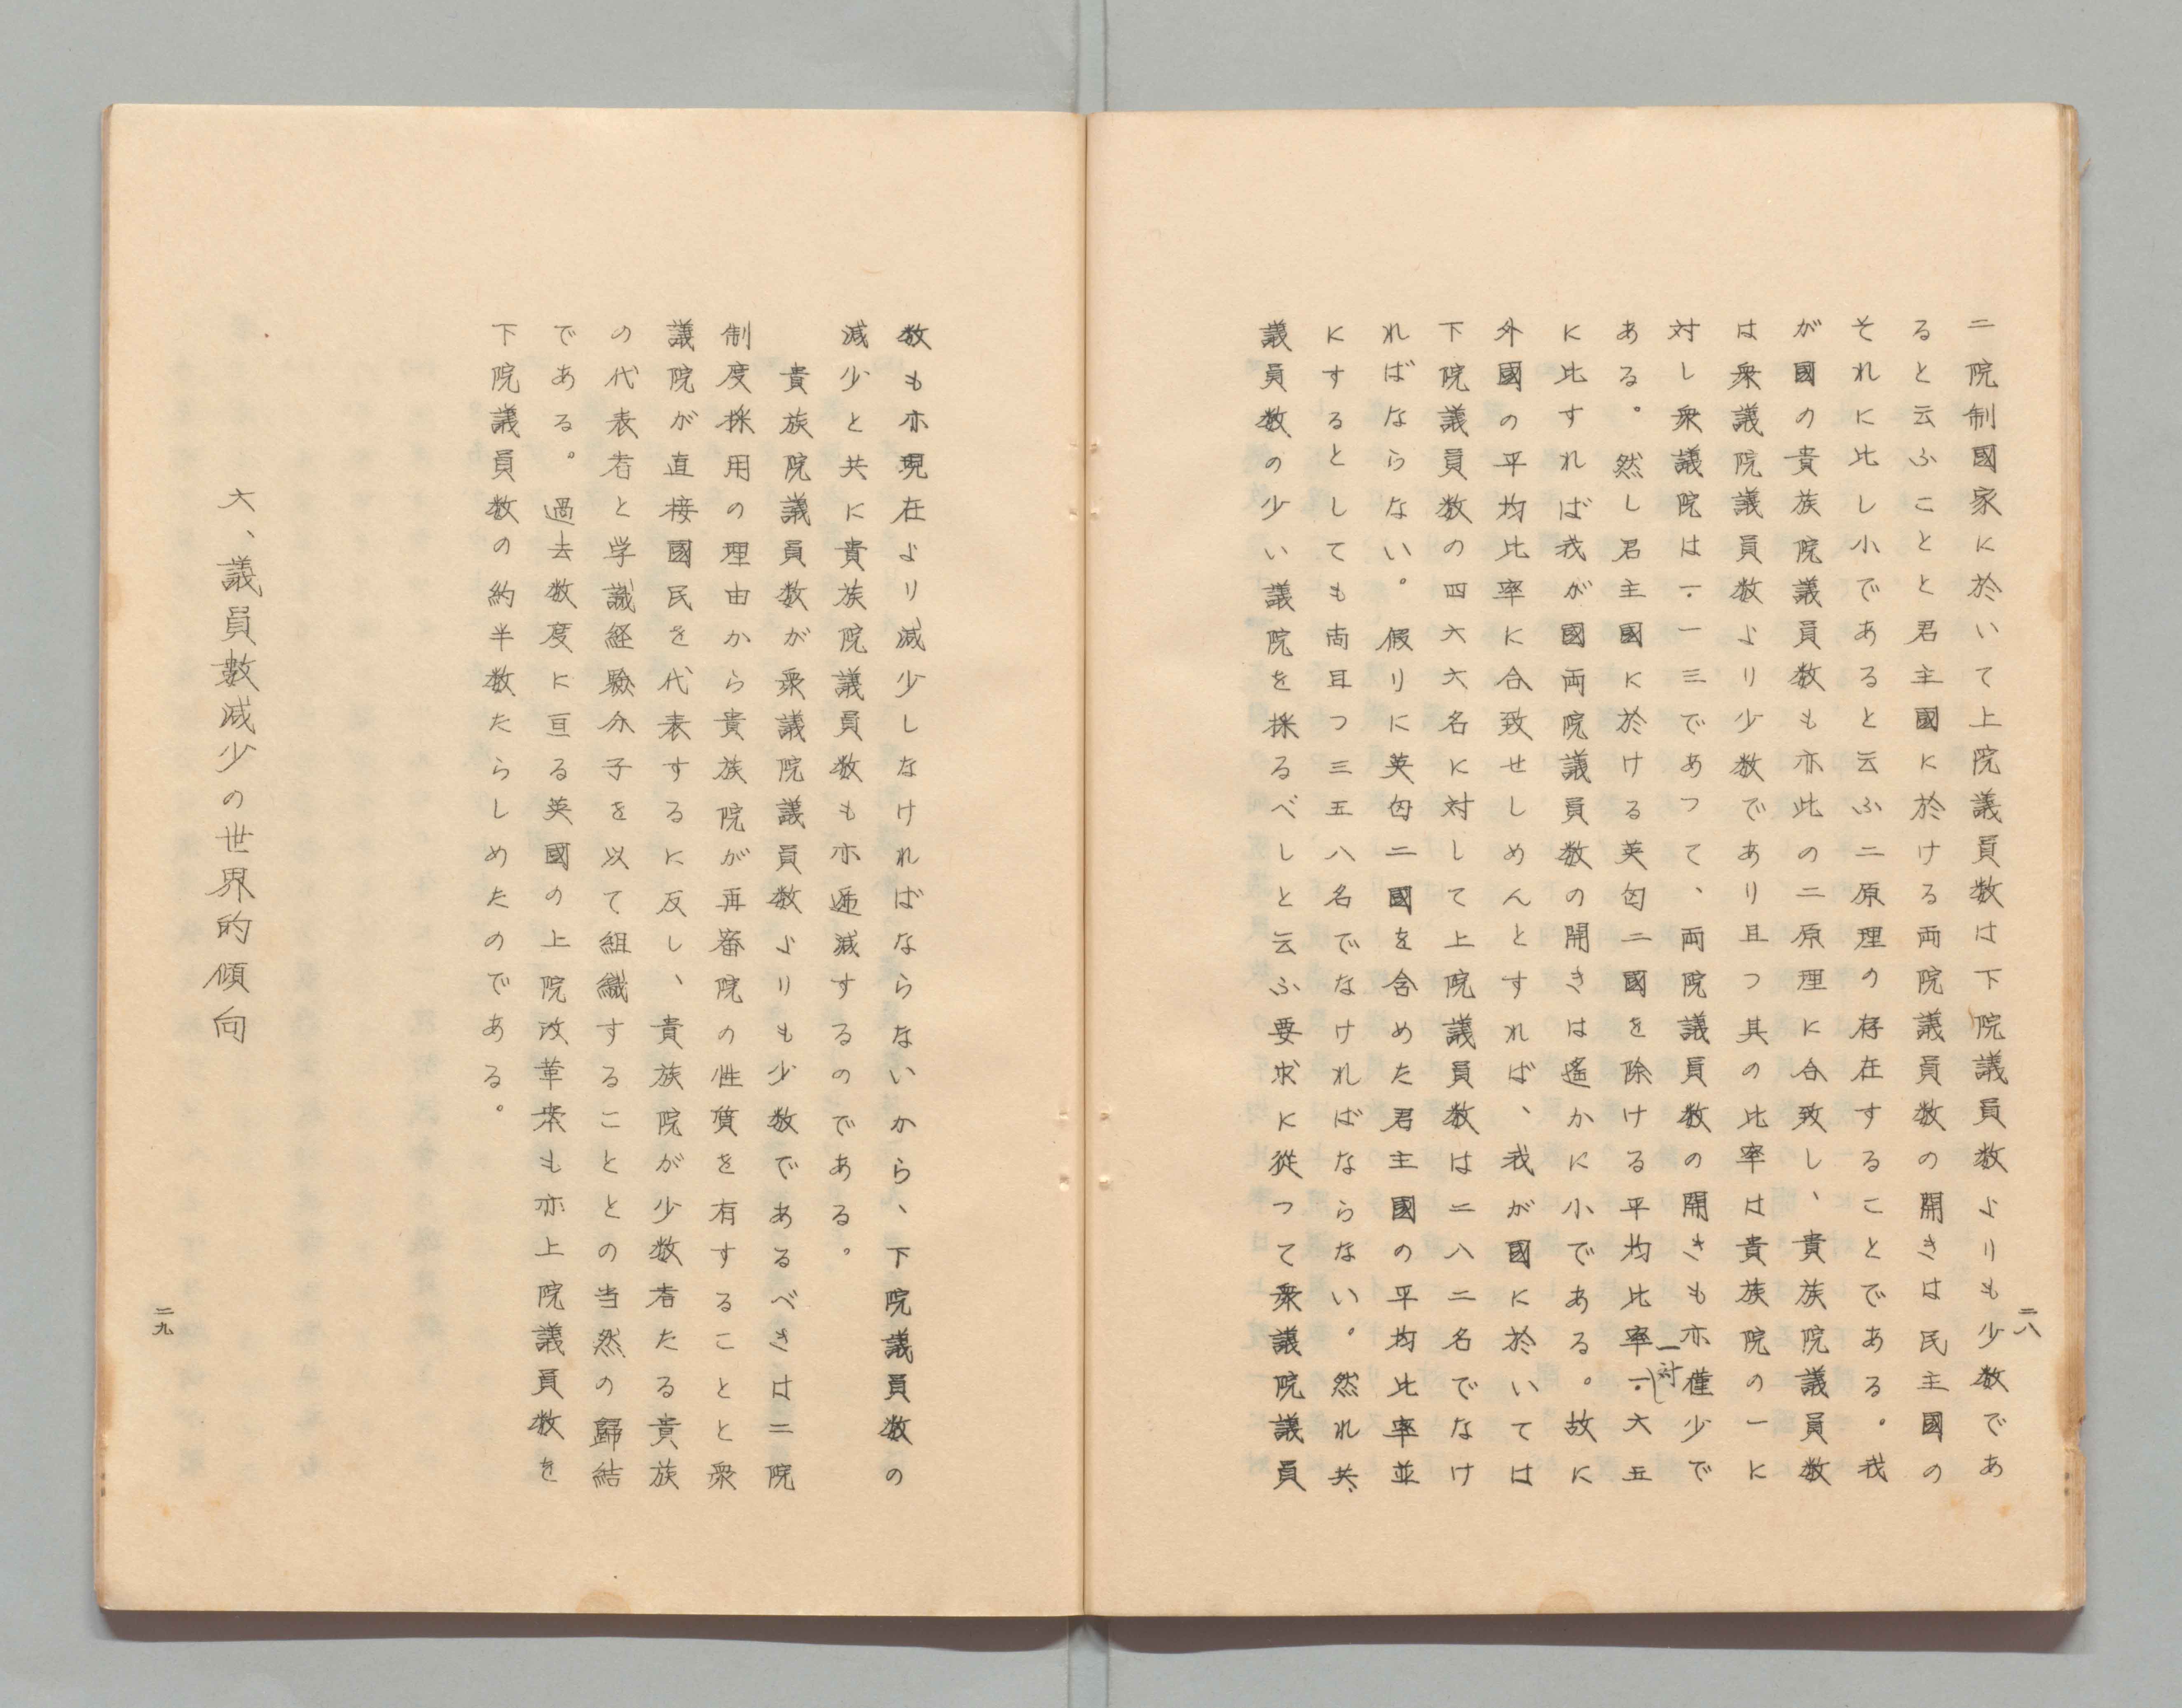 二八
二院制國家に於いて上院議員数は下院議員数よりも少数であ
ると云ふことと君主國に於ける両院議員数の開きは民主國の
それに比し小であると云ふ二原理の存在することである。我
が國の貴族院議員数も亦此の二原理に合致し、貴族院議員数
は衆議院議員数より少数であり且つ其の比率は貴族院の一に
対し衆議院は一・一三であつて、両院議員数の開きも亦僅少で
ある。然し君主國に於ける英匈二國を除ける平均比率一対一・六五
に比すれば我が國両院議員数の開きは遙かに小である。故に
外國の平均比率に合致せしめんとすれば、我が國に於いては
下院議員数の四六六名に対して上院議員数は二八二名でなけ
ればならない。假りに英匈二國を含めた君主國の平均比率並
にするとしても尚且つ三五八名でなければならない。然れ共、
議員数の少い議院を採るべしと云ふ要求に從つて衆議院議員
数も亦現在より減少しなければならないから、下院議員数の
減少と共に貴族院議員数も亦逓減するのである。
貴族院議員数が衆議院議員数よりも少数であるべきは二院
制度採用の理由から貴族院が再審院の性質を有することと衆
議院が直接國民を代表するに反し、貴族院が少数者たる貴族
の代表者と学識経驗分子を以て組織することとの当然の歸結
である。過去数度に亘る英國の上院改革案も亦上院議員数を
下院議員数の約半数たらしめたのである。
六、議員數減少の世界的傾向
二九